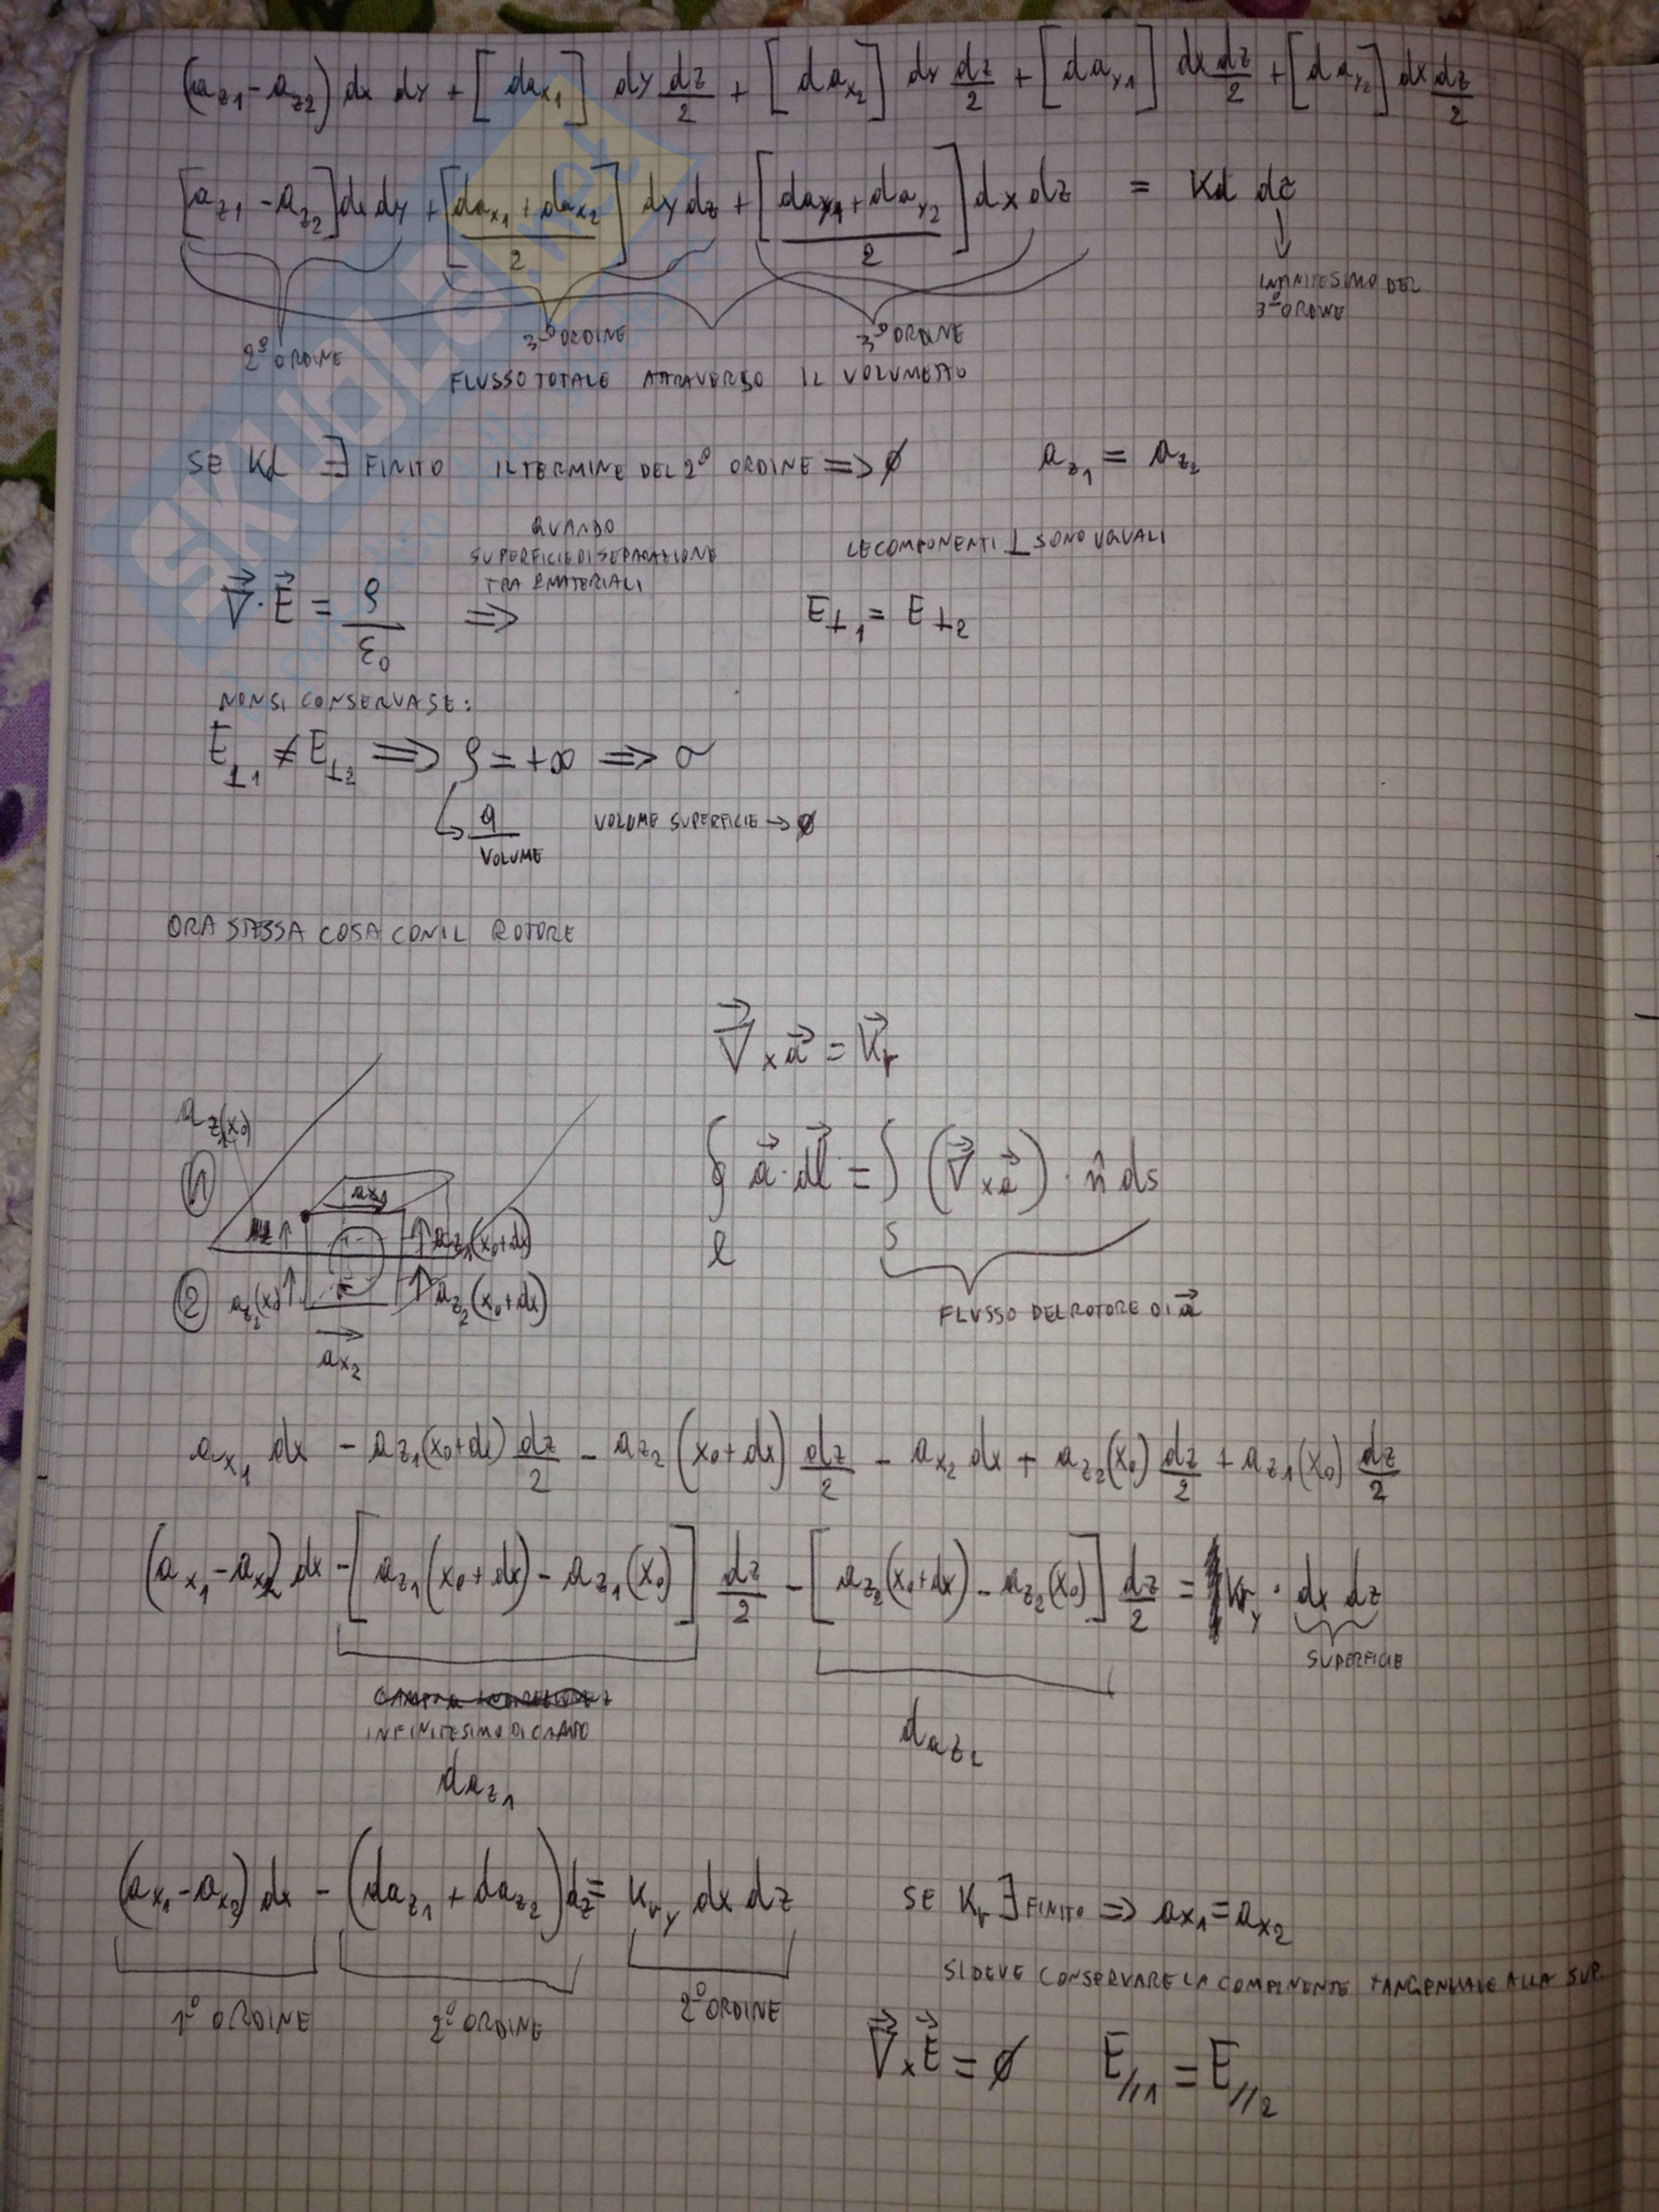 (a_z1 - a_z2) dx dy + [da_x1] dy dz/2 + [da_x2] dy dz/2 + [da_y1] dx dz/2 + [da_y2] dx dz/2
[a_z1 - a_z2] dx dy + [(da_x1 + da_x2)/2] dy dz + [(da_y1 + da_y2)/2] dx dz = Kd dτ
INFINITESIMO DEL
3º ORDINE
2º ORDINE 3º ORDINE 3º ORDINE
FLUSSO TOTALE ATTRAVERSO IL VOLUMETTO
SE Kd ∃ FINITO IL TERMINE DEL 2º ORDINE => ∅ a_z1 = a_z2
QUANDO
SUPERFICIE DI SEPARAZIONE
TRA 2 MATERIALI
LE COMPONENTI ⊥ SONO UGUALI
∇·E = ρ/ε0 => E⊥1 = E⊥2
NON SI CONSERVA SE:
E⊥1 ≠ E⊥2 => ρ = +∞ => σ
q/VOLUME VOLUME SUPERFICIE → ∅
ORA STESSA COSA CON IL ROTORE
∇ x a = Kr
a_z1(x0)
1 a_x1
a_z1(x0+dx)
∮ a·dl = ∫ (∇ x a)·n̂ ds
l S
2 a_z2(x0) a_z2(x0+dx)
FLUSSO DEL ROTORE DI a
a_x2
a_x1 dx - a_z1(x0+dx) dz/2 - a_z2(x0+dx) dz/2 - a_x2 dx + a_z2(x0) dz/2 + a_z1(x0) dz/2
(a_x1 - a_x2) dx - [a_z1(x0+dx) - a_z1(x0)] dz/2 - [a_z2(x0+dx) - a_z2(x0)] dz/2 = Kr_y · dx dz
SUPERFICIE
INFINITESIMO DI CAMPO
da_z1 da_z2
(a_x1 - a_x2) dx - (da_z1 + da_z2) dz = Kr_y dx dz SE Kr ∃ FINITO => a_x1 = a_x2
SI DEVE CONSERVARE LA COMPONENTE TANGENZIALE ALLA SUP.
1º ORDINE 2º ORDINE 2º ORDINE
∇ x E = ∅ E//1 = E//2
SKUOLA.net